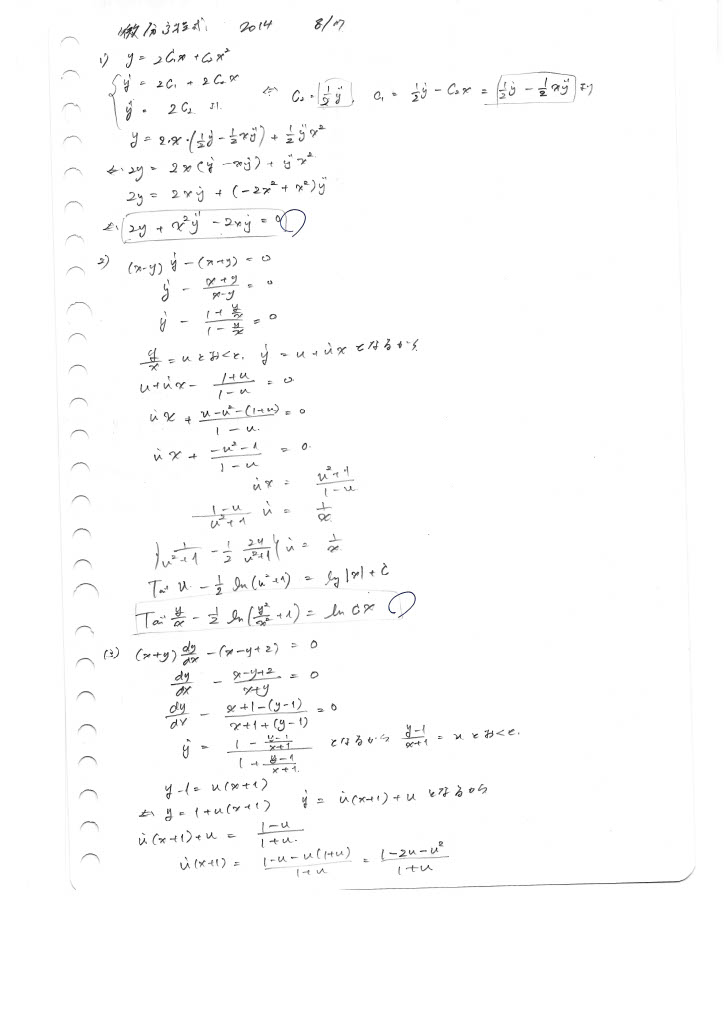 微分方程式. 2014 8/17
1) y = 2C₁x + C₂x²
{ ẏ = 2C₁ + 2C₂x
ÿ = 2C₂ より ⇔ C₂ = ½ÿ, C₁ = ½ẏ - C₂x = ½ẏ - ½xÿ より
y = 2·x·(½ẏ - ½xÿ) + ½ÿx²
⇔ 2y = 2x(ẏ - xÿ) + ÿx²
2y = 2xẏ + (-2x² + x²)ÿ
⇔ 2y + x²ÿ - 2xẏ = 0
2) (x-y)ẏ - (x+y) = 0
ẏ - (x+y)/(x-y) = 0
ẏ - (1 + y/x)/(1 - y/x) = 0
y/x = u とおくと, ẏ = u + u̇x となるから
u + u̇x - (1+u)/(1-u) = 0
u̇x + (u-u²-(1+u))/(1-u) = 0
u̇x + (-u²-1)/(1-u) = 0.
u̇x = (u²+1)/(1-u)
(1-u)/(u²+1) u̇ = 1/x
{1/(u²+1) - ½ 2u/(u²+1)} u̇ = 1/x
Tan⁻¹ u - ½ ln(u²+1) = log|x| + C
Tan⁻¹ y/x - ½ ln(y²/x² + 1) = ln Cx
(3) (x+y) dy/dx - (x-y+2) = 0
dy/dx - (x-y+2)/(x+y) = 0
dy/dx - (x+1-(y-1))/(x+1+(y-1)) = 0
ẏ = (1 - (y-1)/(x+1))/(1 + (y-1)/(x+1)) となるから (y-1)/(x+1) = u とおくと.
y-1 = u(x+1)
⇔ y = 1+u(x+1) ẏ = u̇(x+1) + u となるから
u̇(x+1)+u = (1-u)/(1+u)
u̇(x+1) = (1-u-u(1+u))/(1+u) = (1-2u-u²)/(1+u)